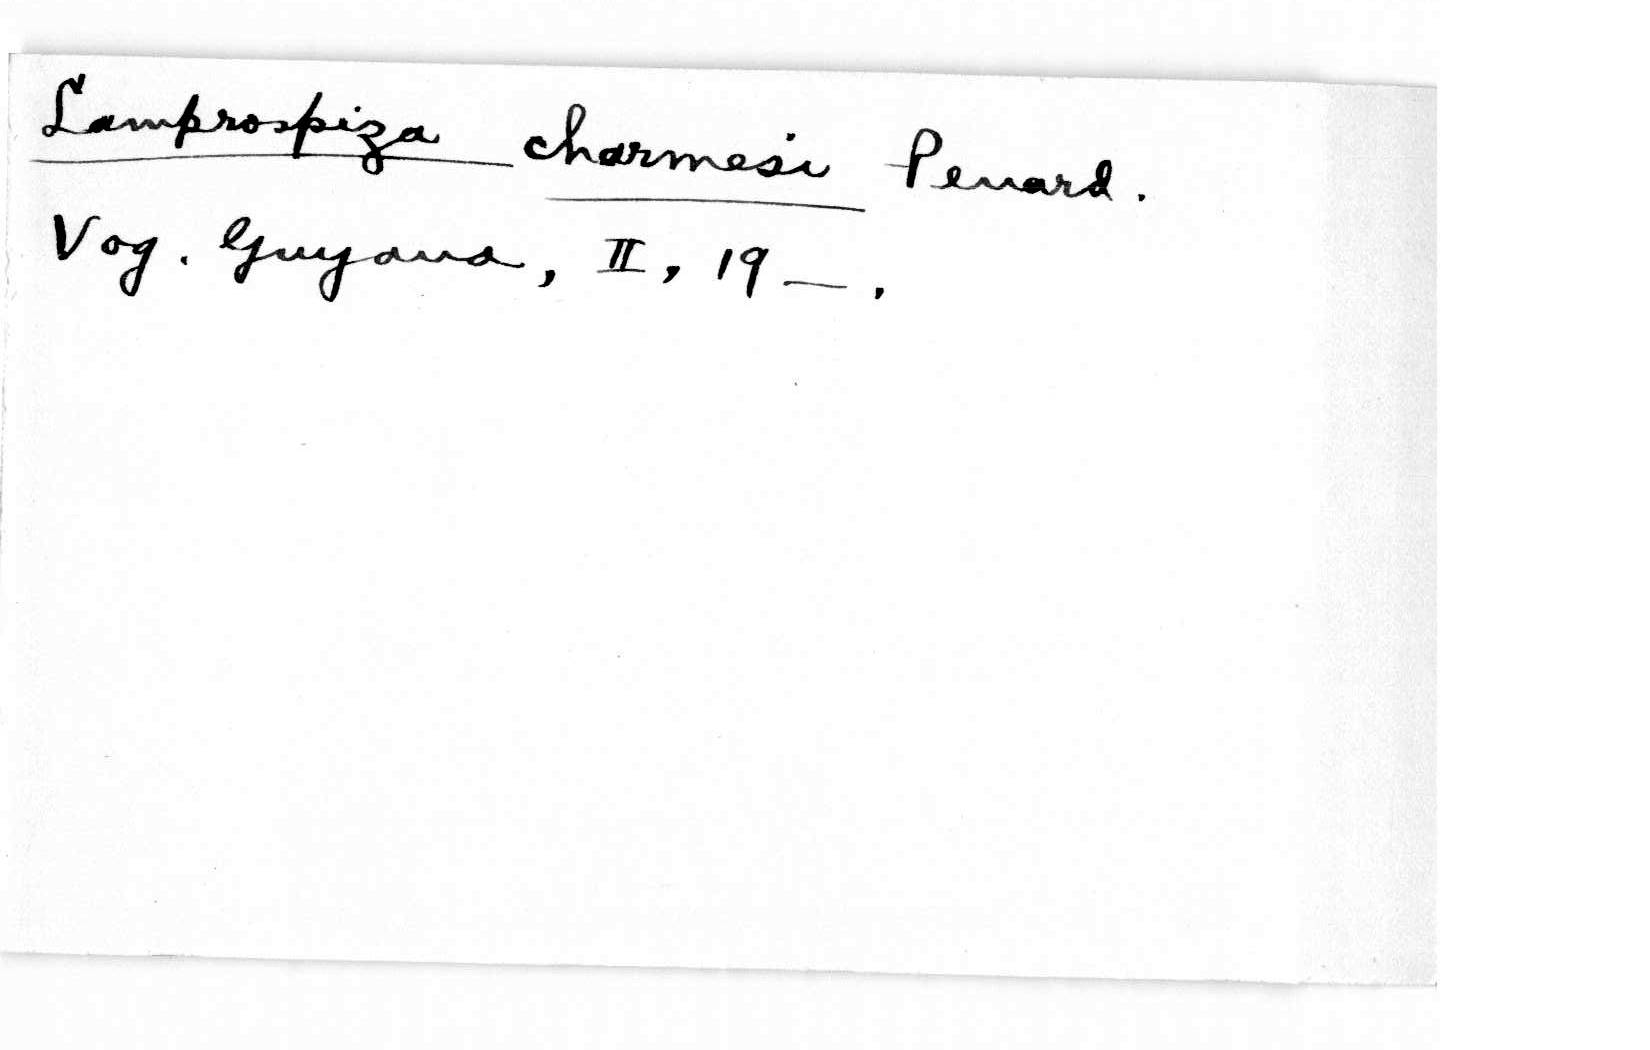 Lamprospiza charmesi Penard.
Vog. Guyana, II, 19—.